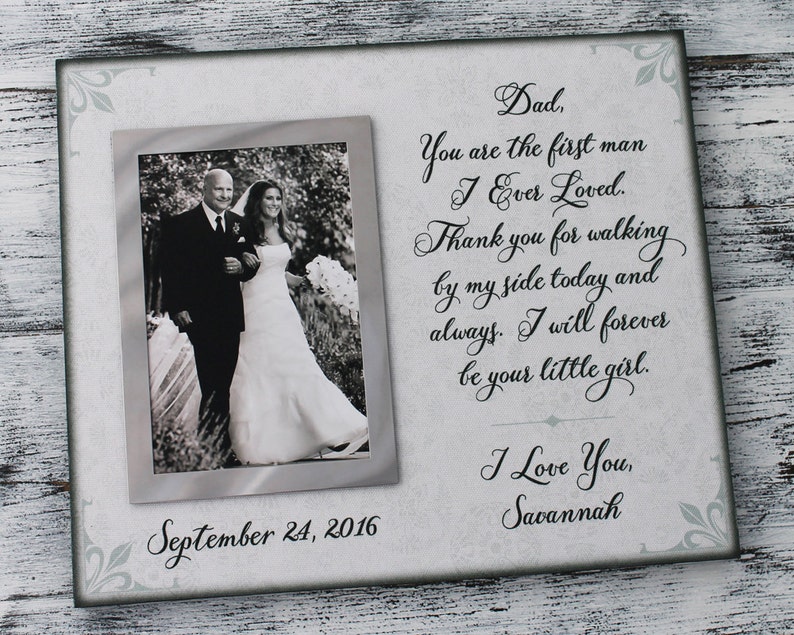 Dad,
You are the first man
I Ever Loved.
Thank you for walking
by my side today and
always. I will forever
be your little girl.
I Love You,
Savannah
September 24, 2016